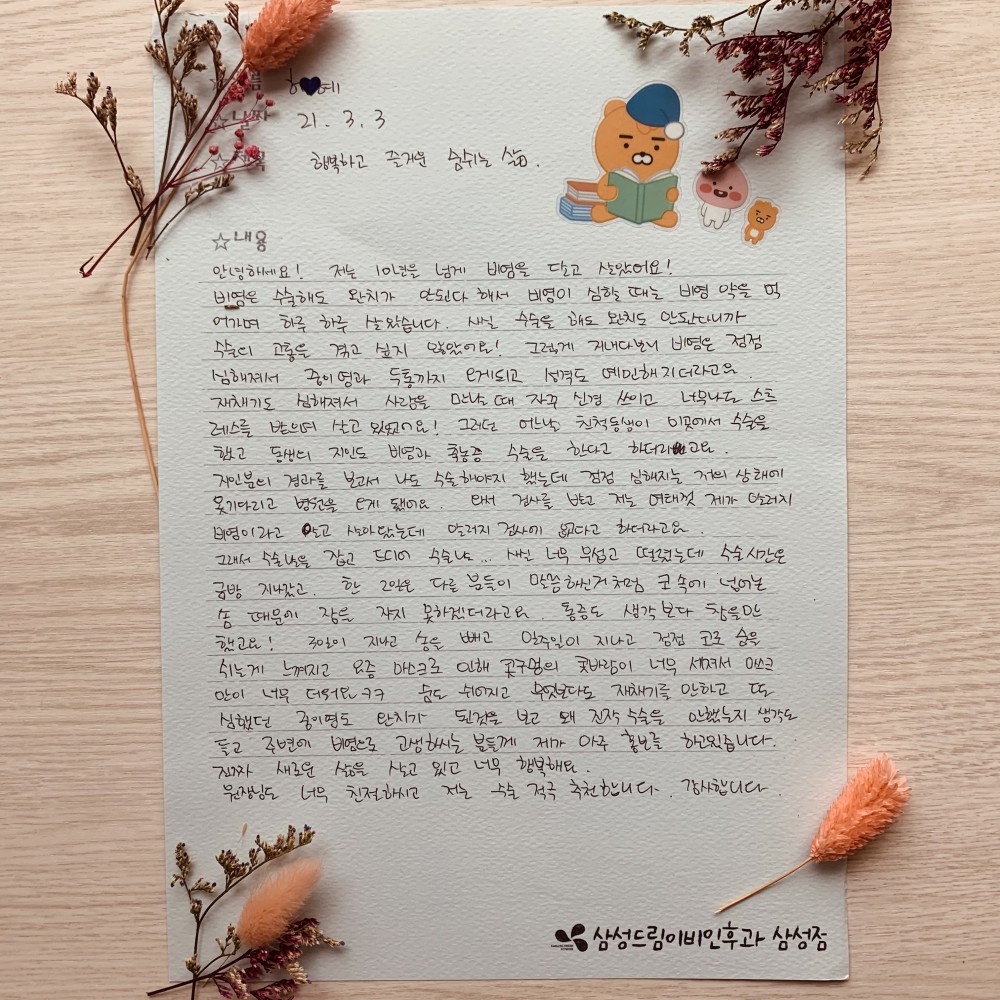 하♥예
☆날짜 21. 3. 3
☆ 행복하고 즐거운 숨쉬는 삶.
☆내용
안녕하세요! 저는 10년을 넘게 비염을 달고 살았어요!
비염은 수술해도 완치가 안된다 해서 비염이 심할 때는 비염 약을 먹
어가며 하루 하루 살았습니다. 사실 수술을 해도 완치도 안된다니까
수술의 고통을 겪고 싶지 않았어요! 그렇게 지내다보니 비염은 점점
심해져서 중이염과 두통까지 오게되고 성격도 예민해지더라고요.
재채기도 심해져서 사람을 만날 때 자꾸 신경 쓰이고 너무나도 스트
레스를 받으며 살고 있었어요! 그러던 어느날 친척동생이 이곳에서 수술을
했고 동생의 지인도 비염과 축농증 수술을 한다고 하더라고요.
지인분의 경과를 보고서 나도 수술해야지 했는데 점점 심해지는 저의 상태에
못기다리고 병원을 오게 됐어요. 와서 검사를 받고 저는 여태껏 제가 알러지
비염이라고 알고 살아왔는데 알러지 검사에 없다고 하더라고요.
그래서 수술날을 잡고 드디어 수술날... 사실 너무 무섭고 떨렸는데 수술시간은
금방 지나갔고. 한 2일은 다른 분들이 말씀하신거처럼 코 속에 넣어논
솜 때문에 잠을 자지 못하겠더라고요. 통증도 생각보다 참을만
했고요! 3일이 지나고 솜을 빼고 일주일이 지나고 점점 코로 숨을
쉬는게 느껴지고 요즘 마스크로 인해 콧구멍의 콧바람이 너무 세져서 마스크
안이 너무 더워요ㅋㅋ 숨도 쉬어지고 무엇보다도 재채기를 안하고 또
심했던 중이염도 완치가 된것을 보고 왜 진작 수술을 안했는지 생각도
들고 주변에 비염으로 고생하시는 분들께 제가 아주 홍보를 하고있습니다.
진짜 새로운 삶을 살고 있고 너무 행복해요.
원장님도 너무 친절하시고 저는 수술 적극 추천합니다. 감사합니다.
삼성드림이비인후과 삼성점